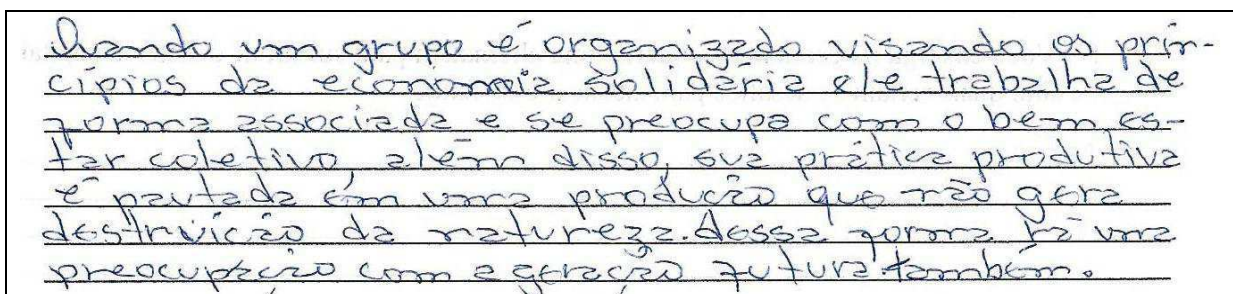 Quando um grupo é organizado visando os prin-
cípios da economia solidária ele trabalha de
forma associada e se preocupa com o bem es-
tar coletivo além disso, sua prática produtiva
é pautada em uma produção que não gera
destruição da natureza. dessa forma há uma
preocupação com a geração futura também.